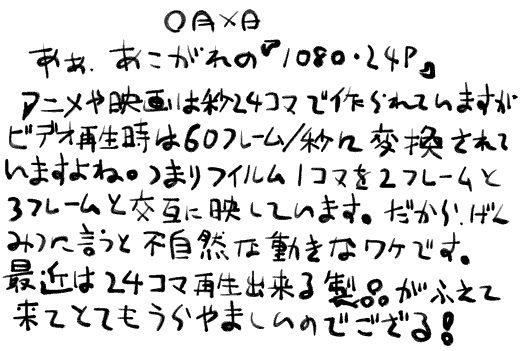 〇月×日
あぁ、あこがれの『1080・24P』
アニメや映画は秒24コマで作られていますが
ビデオ再生時は60フレーム/秒に変換されて
いますよね。つまりフイルム1コマを2フレームと
3フレームと交互に映しています。だから、げん
みつに言うと不自然な動きなワケです。
最近は24コマ再生出来る製品がふえて
来てとてもうらやましいのでござる！